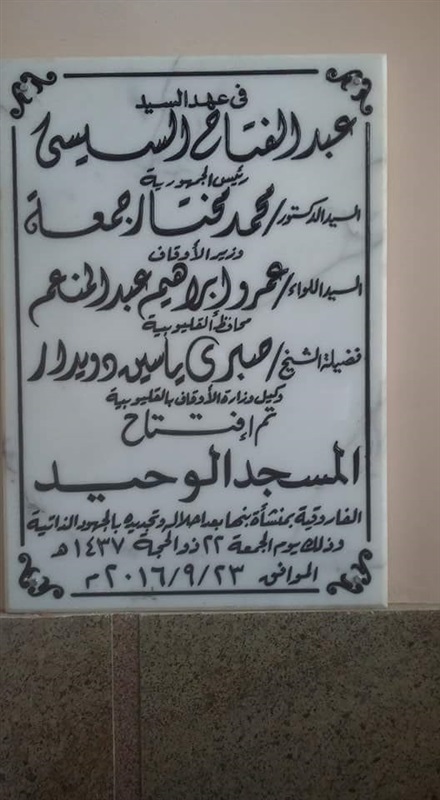 فى عهد السيد
عبد الفتاح السيسى
رئيس الجمهورية
السيد الدكتور/ محمد مختار جمعة
وزير الأوقاف
السيد اللواء/ عمرو ابراهيم عبد المنعم
محافظ القليوبية
فضيلة الشيخ/ صبرى ياسين دويدار
وكيل وزارة الأوقاف بالقليوبية
تم إفتتاح
المسجد الوحيد
الفاروقية بمنشأة بنها بعد احلاله وتجديده بالجهود الذاتية
وذلك يوم الجمعة ٢٢ ذو الحجة ١٤٣٧ هـ
الموافق ٢٠١٦/٩/٢٣ م